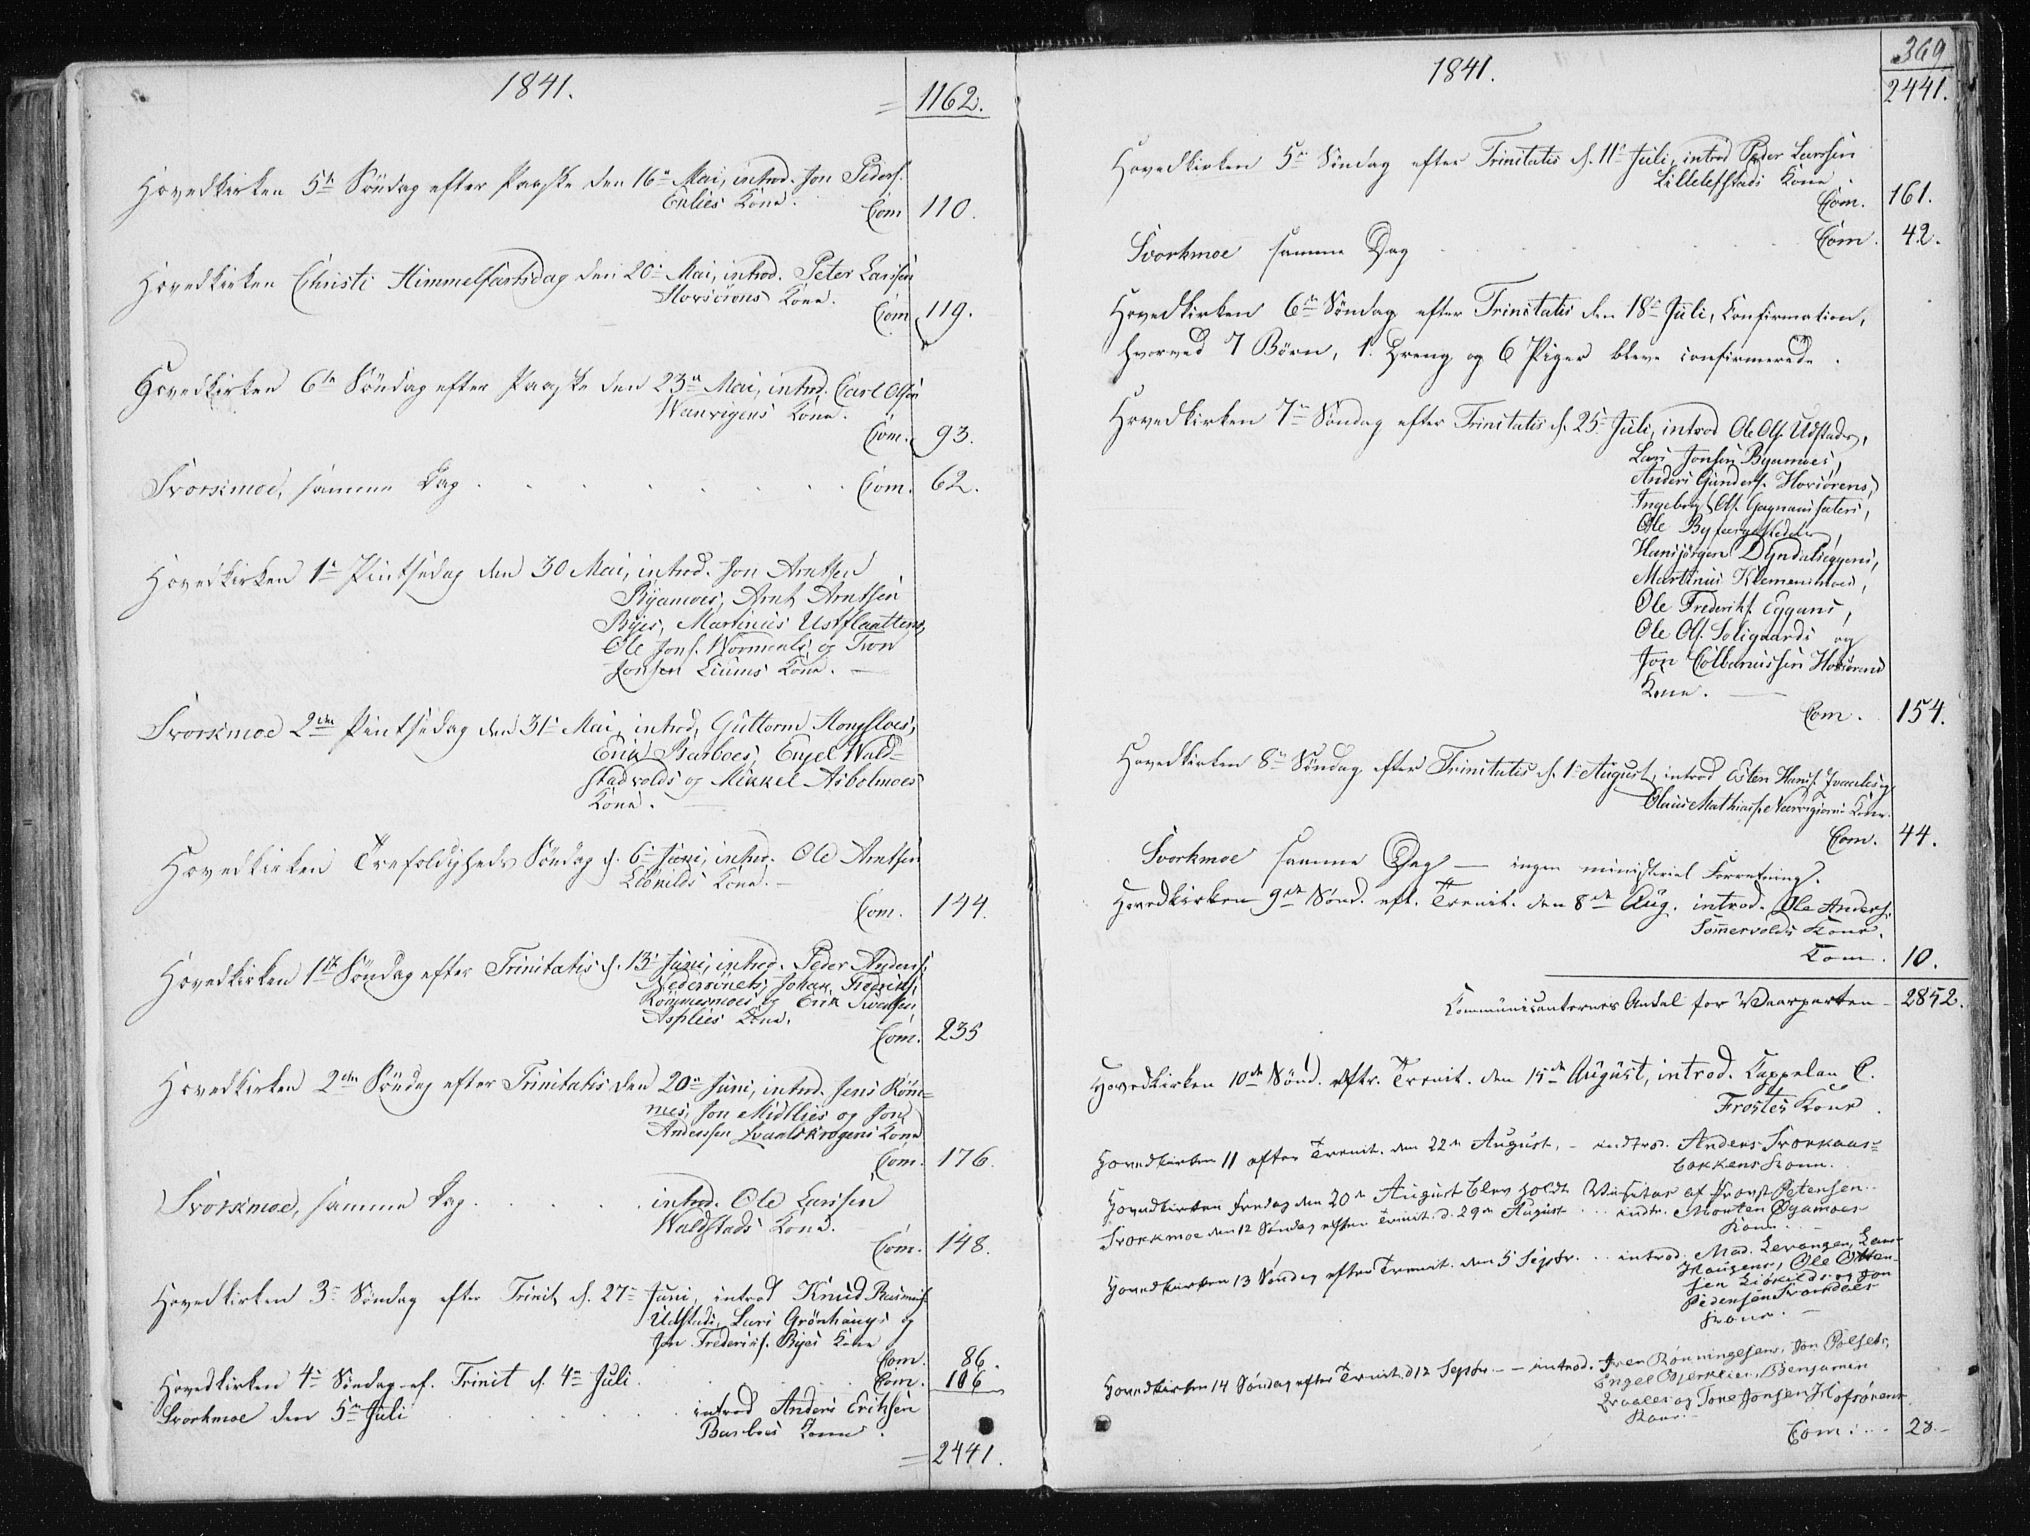 1841.
= 1162.
Hovedkirken 5te Söndag efter Paaske den 16de Mai, introd. Jon Peders.
Enlies Kone.
Com 110.
Hovedkirken Christi Himmelfartsdag den 20de Mai, introd. Peter Larsen
Hovsörens Kone.
Com 119.
Hovedkirken 6te Söndag efter Paaske den 23de Mai, introd. Carl Olsen
Kone.
Com. 93.
Svorkmoe, samme Dag . . . . . . . Com. 62.
Hovedkirken 1te Pintsedag den 30 Mai, introd. Jon Arntsen
Byamoes, Arnt Arntsen
Byes, Martinus Ustflaattens,
Ole Jons. Wormdals, og Tron
Jonsen Liums Kone. —
Svorkmoe 2den Pintsedag den 31te Mai, introd, Guttorm
Erik Barboes, Engel Wald-
stadvolds og Mikkel Asbolmoes
Kone. —
Hovedkirken Trefoldigheds Söndag d. 6te Juni, introd. Ole Arntsen
Liökilds Kone. —
Com. 144.
Hovedkirken 1ste Söndag efter Trinitatis d. 13de Juni, introd. Peder Anders.
Johan, Fredriks.
Römmesmoes og Erik Svensen
Asplies Kone.
Com. 235
Hovedkirken 2den Söndag efter Trinitatis den 20de Juni, introd. Jens Röm-
mes, Jon Midtlies og Jon
Anderssen Evaldskrogens Kone
Com. 176.
Svorkmoe, samme Dag . . . . . introd. Ole Larssen
Waldstads Kone.
Com. 148.
Hovedkirken 3de Söndag efter Trinit, d. 27de Juni, introd Knud Rasmus.
Udstads, Lars Grönhaugs og
Jon Frederiks. Byes Kone
Com. 86.
Hovedkirken 4de Söndag ef. Trinit d. 4de Juli . . . Com. 106
Svorkmoe den 5te Juli . . . . . introd Anders Erichsen
Barboes Kone.
= 2441.
1841.
369
2441.
Hovedkirken 5te Söndag efter Trinitatis d. 11te Juli, introd Peder Larssen
Kone.
Com. 161.
Svorkmoe samme Dag . . . . . Com. 42.
Hovedkirken 6te Söndag efter Trinitatis den 18de Juli, Confirmation,
hvorved 7 Börn, 1. Dreng og 6 Piger bleve confirmerede.
Hovedkirken 7de Söndag efter Trinitatis d. 25de Juli, introd Ole Ols. Udstads,
Lars Jonsen Byamoes,
Anders Gunders. Hovsörens,
Ingebrigt Ols. Gagnaassæters,
Ole
Hansjörgen Dyndalseggens,
Martinus Klemensmoes,
Ole Frederiks. Eggens,
Ole Ols. Soligaards og
Jon Colbanussen Hovsörens
Kone. —
Com. 154.
Hovedkirken 8de Söndag efter Trinitatis d. 1te August, introd Osten Hans. Evaales og
Olaus Mathiass. Kone.
Com. 44.
Svorkmoe samme Dag — ingen ministeriel Forretning.
Hovedkirken 9de Sönd. eft. Trenit. den 8de Aug. introd. Ole Anders.
Sommervolds Kone.
Com. 10.
Communicanternes Antal for Vaarparten — 2852.
Hovedkirken 10de Sönd. eftr. Trenit. den 15de August, introd. Cappelan C.
Frostes Kone.
Hovedkirken 11 efter Trenit. den 22de August, — indtrod. Anders Svorkaas-
bakkens Kone.
Hovedkirken Fredag den 20de August blev holdt Visitas af Provst Petersen.
Svorkmoe den 12 Söndag efter Trinit. d. 29de August . . . indtr. Morten Øyamoes
Kone.
Hovedkirken 13 Söndag efter Trenit. den 5 Septr. . . introd. Mad. Levangen, Lars
Haugens, Ole Otten-
sen Liökilds og Jon
Pedersen Svorkdals
Kone. —
Hovedkirken 14 Söndag efter Trenit. d 12 Septbr. — — introd. Iver Rönningsens, Jon Solsets,
Engel Bjerklies, Benjamin
Evaales og Tone Jonsen Hofsörens
Kone. —
Com: . . . 28. —